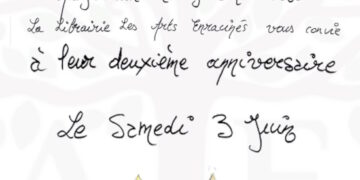 La Librairie Les Arts Enracinés vous convie
à leur deuxième anniversaire
Le Samedi 3 Juin